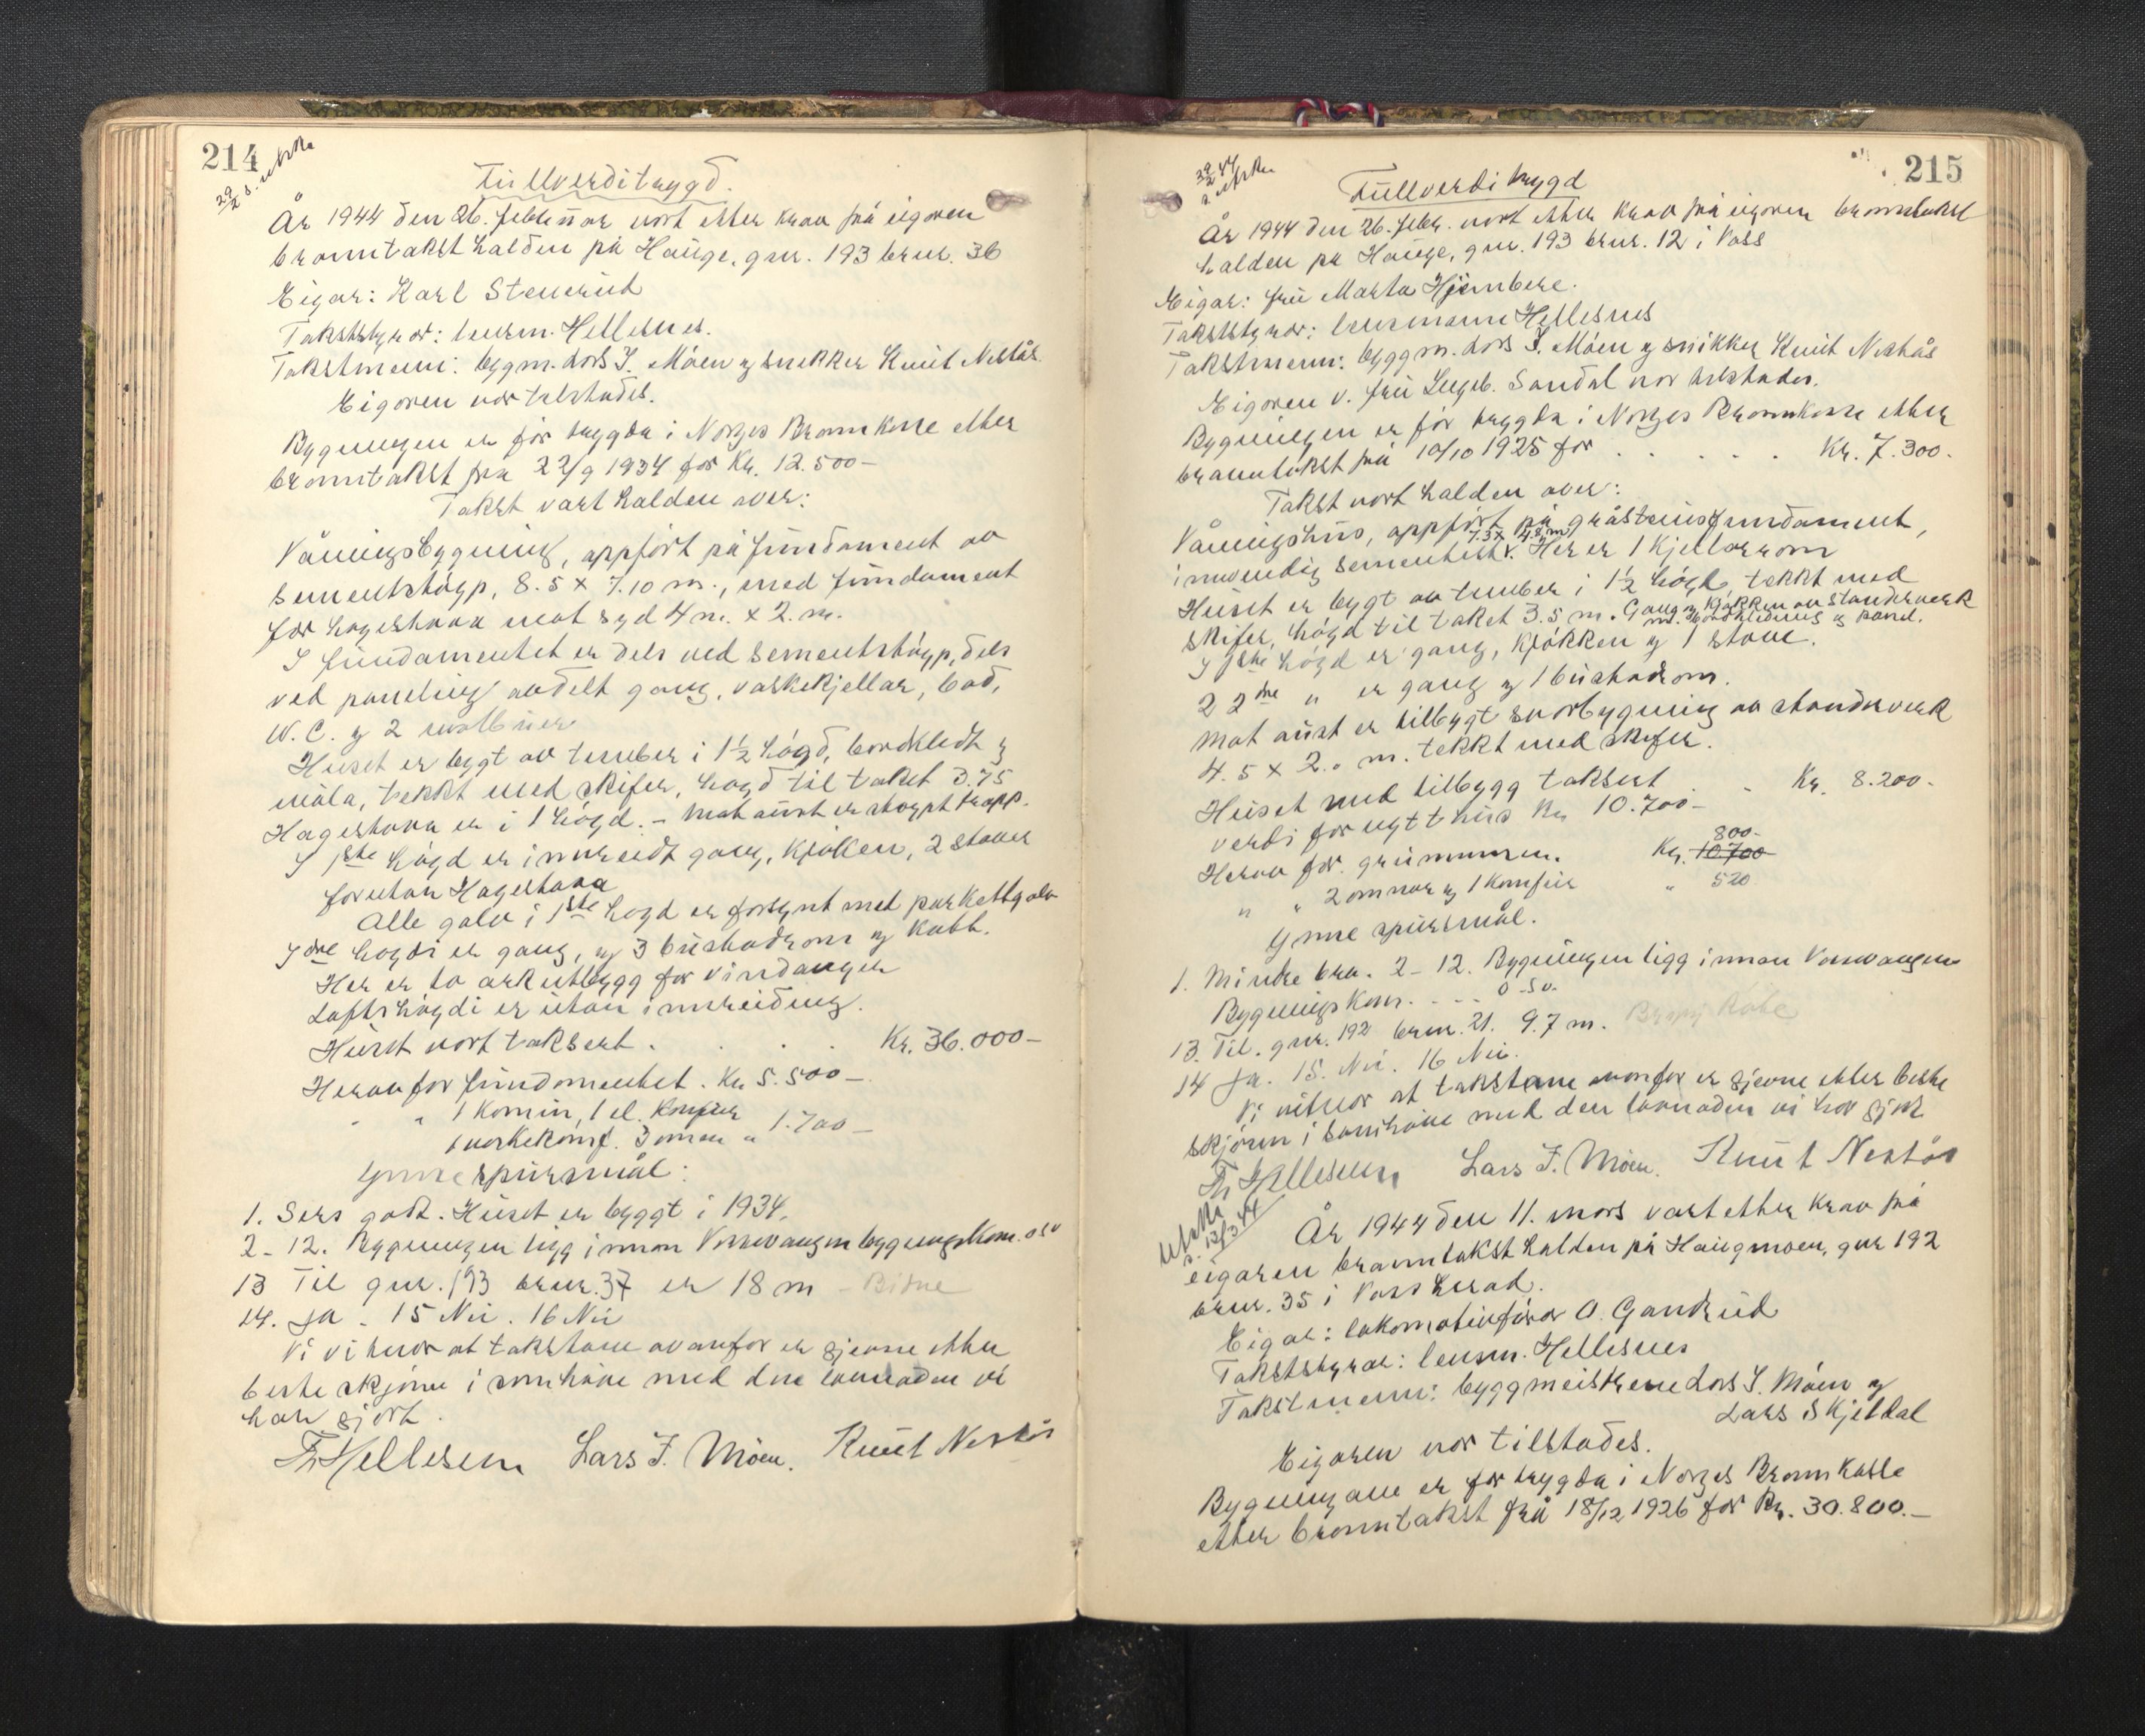 214
29/2 s. utskr.
Fullverditrygd.
År 1944 den 26. februar vort etter krav frå eigaren
branntakst halden på Hauge, gnr. 193 brnr. 36
Eigar: Karl Stenerud
Takststyrar: lensm. Hellesnes.
Takstmenn: byggm. Lars J. Møen og snekker Knut Nestås.
Eigaren var tilstades.
Bygningen er før trygda i Norges Brannkasse etter
branntakst fra 22/9 1934 for Kr. 12.500—
Takst vart halden over:
Våningsbygning, oppført på fundament av
sementstøyp, 8.5 x 7.10 m., med fundament
for hagestova mot syd 4 m. x 2. m.
I fundamentet er dels ved sementstøyp, dels
ved paneling avdelt gang, vaskekjellar, bad,
W.C. og 2 matbuer
Huset er bygt av tømber i 1½ høgd, bordkledt og
måla, tekkt med skifer, høgd til taket 3.75
Hagestova er i 1 høgd. – Mot aust er støypt trapp.
I 1ste høgd er innreidt gang, kjøkken, 2 stover
forutan Hagestova
Alle golv i 1ste høgd er forsynt med parkettgolv
I 2dre høgdi er gang, og 3 bustadrom og kott.
Her er to arkutbygg for vindauger
Loftshøgdi er utan innreiding.
Huset vort taksert . . . . Kr. 36.000—
Herav for fundamentet. Kr. 5.500—
" " 1 komin, 1 el. komfur
1 vaskekomf. 3 omnar " 1.700—
Ymse spursmål:
1. Sers godt. Huset er byggt i 1934.
2–12. Bygningen ligg innan Vossevangen bygningskom. osv
13 Til gnr. 193 brnr. 37 er 18 m
14. Ja. 15 Nei. 16 Nei
Vi vitnar at takstane ovanfor er gjevne etter
beste skjønn i samhøve med den lovnaden vi
har gjort.
Th Hellesnes Lars J. Møen. Knut Nestås
215
29/2 44
s. utskr.
Fullverditrygd
År 1944 den 26. febr. vort etter krav frå eigaren branntakst
halden på Hauge, gnr. 193 brnr. 12 i Voss
Eigar: fru Marta Hjernbere.
Takststyrar: lensmann Hellesnes
Takstmenn: byggm. Lars J. Møen og snikker Knut Nestås
Eigaren v. fru Ingeb. Sandal var tilstades.
Bygningen er før trygda i Norges Brannkasse etter
branntakst frå 10/10 1925 for . . . . . Kr. 7.300.
Takst vort halden over:
Våningshus, oppført på gråsteinsfundament,
7.3 x 4.8 m
innvendig sementert. Her er 1 kjellarrom
Huset er bygt av tømber i 1½ høgd, tekkt med
skifer, høgd til taket 3.5 m. Gang og kjøkken av standerverk
m. bordkledning og panel.
I 1ste høgd er gang, kjøkken og 1 stove.
I 2dre " er gang og 1 bustadrom.
Mot aust er tilbygt svorbygning av standerverk
4.5 x 2.0 m. tekkt med skifer.
Huset med tilbygg taksert . . Kr. 8.200.
verdi for nytt hus Kr. 10.700—
800.
Herav for grunnmuren. Kr. 10.700
" " 2 omnar og 1 komfur " 520
Ymse spursmål.
1. Mindre bra. 2–12. Bygningen ligg innan Vossevangen
Bygningskom. . . . o. s v.
13. Til. gnr. 192 brnr. 21. 9.7 m.
14 Ja. 15. Nei. 16 Nei.
Vi vitnar at takstane ovanfor er gjevne etter beste
skjønn i samhøve med den lovnaden vi har gjort
Th Hellesnes Lars J. Møen. Knut Nestås
Utskr.
s. 13/3 44
År 1944 den 11. mars vart etter krav frå
eigaren branntakst halden på Haugmoen, gnr 192
brnr. 35 i Voss herad.
Eigar: lokomotivførar O. Gandrud
Takststyrar: lensm. Hellesnes
Takstmenn: byggmeistrene Lars J. Møen og
Lars Skjeldal
Eigaren var tilstades.
Bygningane er før trygda i Norges Brannkasse
etter branntakst frå 18/12 1926 for Kr. 30.800.—